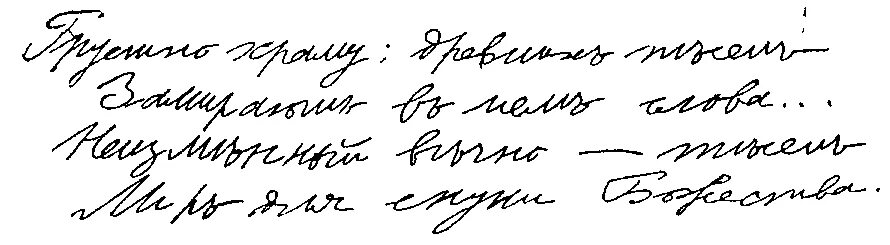 Грустно храму: древнихъ пѣсенъ
Замираютъ въ немъ слова...
Неизмѣнный вѣчно — тѣсенъ
Миръ для скуки Божества.